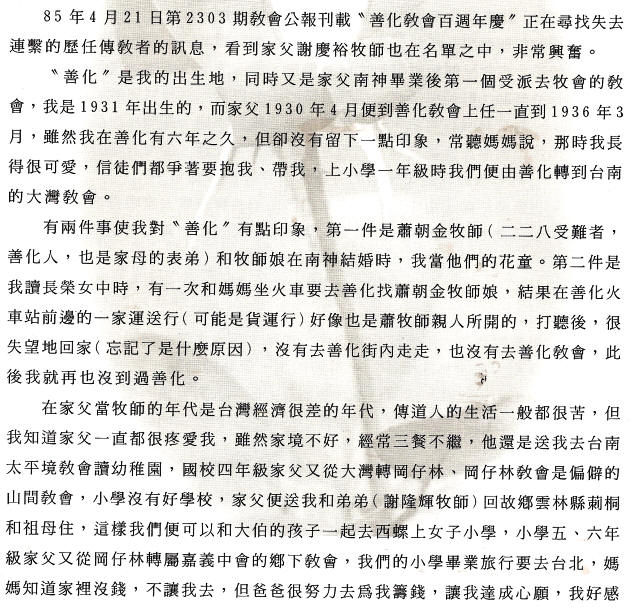 85年4月21日第2303期教會公報刊載〝善化教會百週年慶〞正在尋找失去
連繫的歷任傳教者的訊息，看到家父謝慶裕牧師也在名單之中，非常興奮。
〝善化〞是我的出生地，同時又是家父南神畢業後第一個受派去牧會的教
會，我是1931年出生的，而家父1930年4月便到善化教會上任一直到1936年3
月，雖然我在善化有六年之久，但卻沒有留下一點印象，常聽媽媽說，那時我長
得很可愛，信徒們都爭著要抱我、帶我，上小學一年級時我們便由善化轉到台南
的大灣教會。
有兩件事使我對〝善化〞有點印象，第一件是蕭朝金牧師(二二八受難者，
善化人，也是家母的表弟)和牧師娘在南神結婚時，我當他們的花童。第二件是
我讀長榮女中時，有一次和媽媽坐火車要去善化找蕭朝金牧師娘，結果在善化火
車站前邊的一家運送行(可能是貨運行)好像也是蕭牧師親人所開的，打聽後，很
失望地回家(忘記了是什麼原因)，沒有去善化街內走走，也沒有去善化教會，此
後我就再也沒到過善化。
在家父當牧師的年代是台灣經濟很差的年代，傳道人的生活一般都很苦，但
我知道家父一直都很疼愛我，雖然家境不好，經常三餐不繼，他還是送我去台南
太平境教會讀幼稚園，國校四年級家父又從大灣轉岡仔林、岡仔林教會是偏僻的
山間教會，小學沒有好學校，家父便送我和弟弟(謝隆輝牧師)回故鄉雲林縣莿桐
和祖母住，這樣我們便可以和大伯的孩子一起去西螺上女子小學，小學五、六年
級家父又從岡仔林轉屬嘉義中會的鄉下教會，我們的小學畢業旅行要去台北，媽
媽知道家裡沒錢，不讓我去，但爸爸很努力去為我籌錢，讓我達成心願，我好感